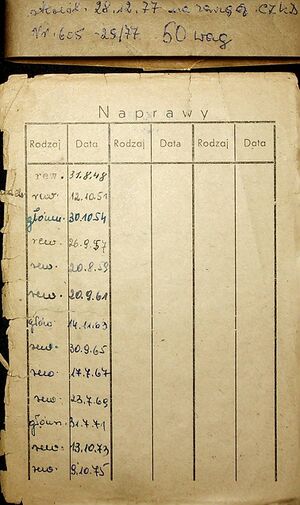 28.12.77 na
Nr. 605 -25/77 50 wag
Naprawy
Rodzaj Data Rodzaj Data Rodzaj Data
rew. 31.8.48
rew. 12.10.51
główn. 30.10.54
rew. 26.9.57
rew. 20.8.59
rew. 20.9.61
główn 14.11.63
rew. 30.9.65
rew. 17.7.67
rew. 23.7.69
główn. 31.7.71
rew. 13.10.73
rew. 9.10.75